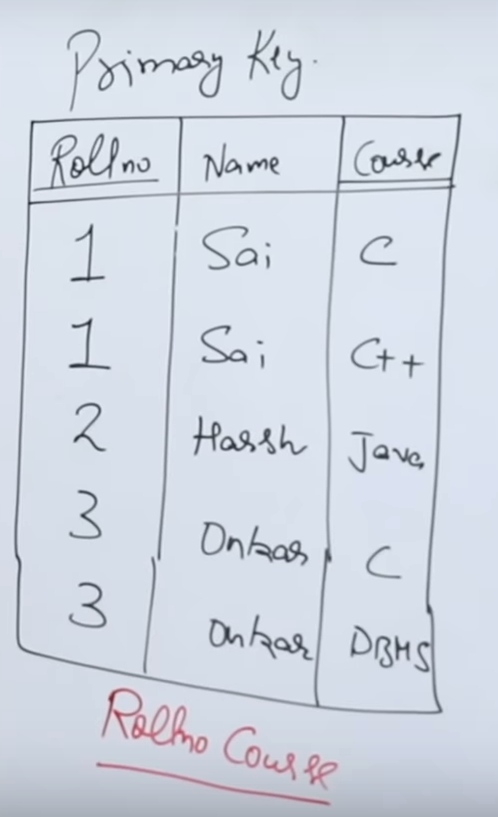 Primary Key.
Rollno Name Course
1 Sai C
1 Sai C++
2 Harsh Java
3 Onkar C
3 Onkar DBMS
Rollno Course